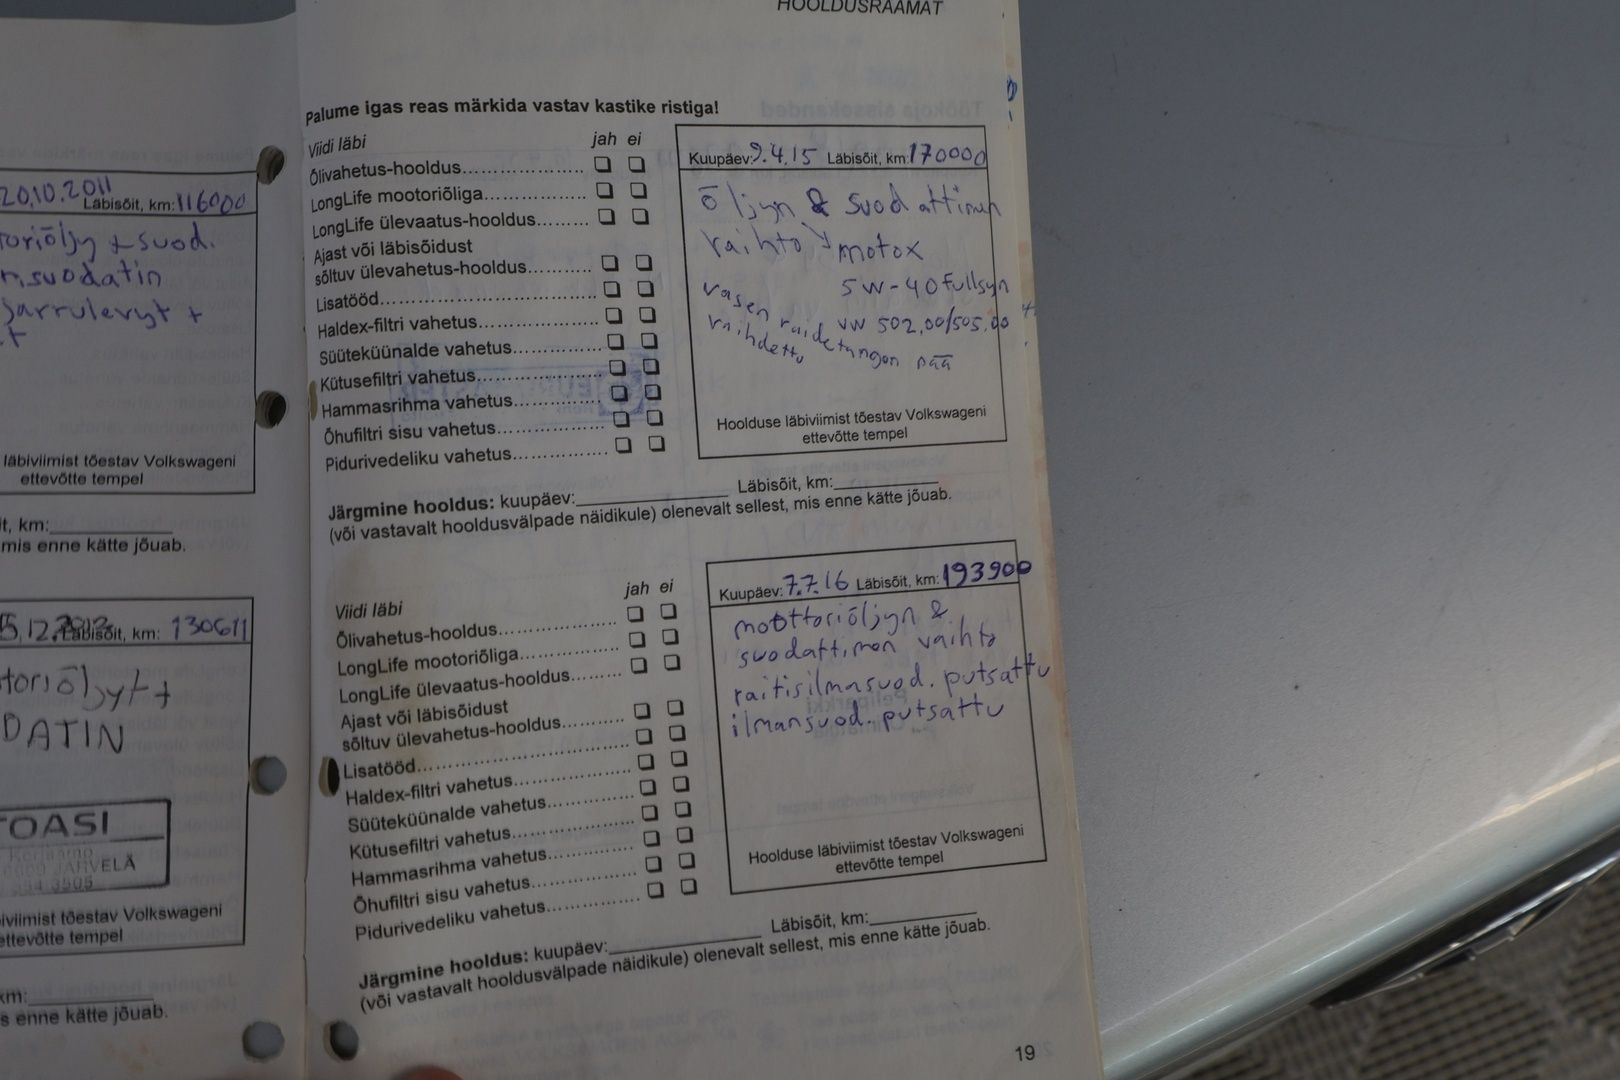 20.10.2011
Läbisõit, km: 116000
toriöljy + suod.
nsuodatin
jarrulevyt +
t
läbiviimist tõestav Volkswageni
ettevõtte tempel
it, km:
mis enne kätte jõuab.
15.12.2012 Läbisõit, km: 130611
toriöljyt +
DATIN
TOASI
Korjaamo
JÄRVELÄ
3505
biviimist tõestav Volkswageni
ettevõtte tempel
km:
s enne kätte jõuab.
HOOLDUSRAAMAT
Palume igas reas märkida vastav kastike ristiga!
Viidi läbi jah ei
Õlivahetus-hooldus
LongLife mootoriõliga
LongLife ülevaatus-hooldus
Ajast või läbisõidust
sõltuv ülevahetus-hooldus
Lisatööd
Haldex-filtri vahetus
Süüteküünalde vahetus
Kütusefiltri vahetus
Hammasrihma vahetus
Õhufiltri sisu vahetus
Pidurivedeliku vahetus
Kuupäev: 9.4.15 Läbisõit, km: 170000
öljyn & suodattimen
vaihto motox
5W-40 Fullsyn
VW 502.00/505.00
vasen raidetangon pää
vaihdettu
Hoolduse läbiviimist tõestav Volkswageni
ettevõtte tempel
Järgmine hooldus: kuupäev: Läbisõit, km:
(või vastavalt hooldusvälpade näidikule) olenevalt sellest, mis enne kätte jõuab.
Viidi läbi jah ei
Õlivahetus-hooldus
LongLife mootoriõliga
LongLife ülevaatus-hooldus
Ajast või läbisõidust
sõltuv ülevahetus-hooldus
Lisatööd
Haldex-filtri vahetus
Süüteküünalde vahetus
Kütusefiltri vahetus
Hammasrihma vahetus
Õhufiltri sisu vahetus
Pidurivedeliku vahetus
Kuupäev: 7.7.16 Läbisõit, km: 193900
moottoriöljyn &
suodattimen vaihto
raitisilmasuod. putsattu
ilmansuod. putsattu
Hoolduse läbiviimist tõestav Volkswageni
ettevõtte tempel
Järgmine hooldus: kuupäev: Läbisõit, km:
(või vastavalt hooldusvälpade näidikule) olenevalt sellest, mis enne kätte jõuab.
19